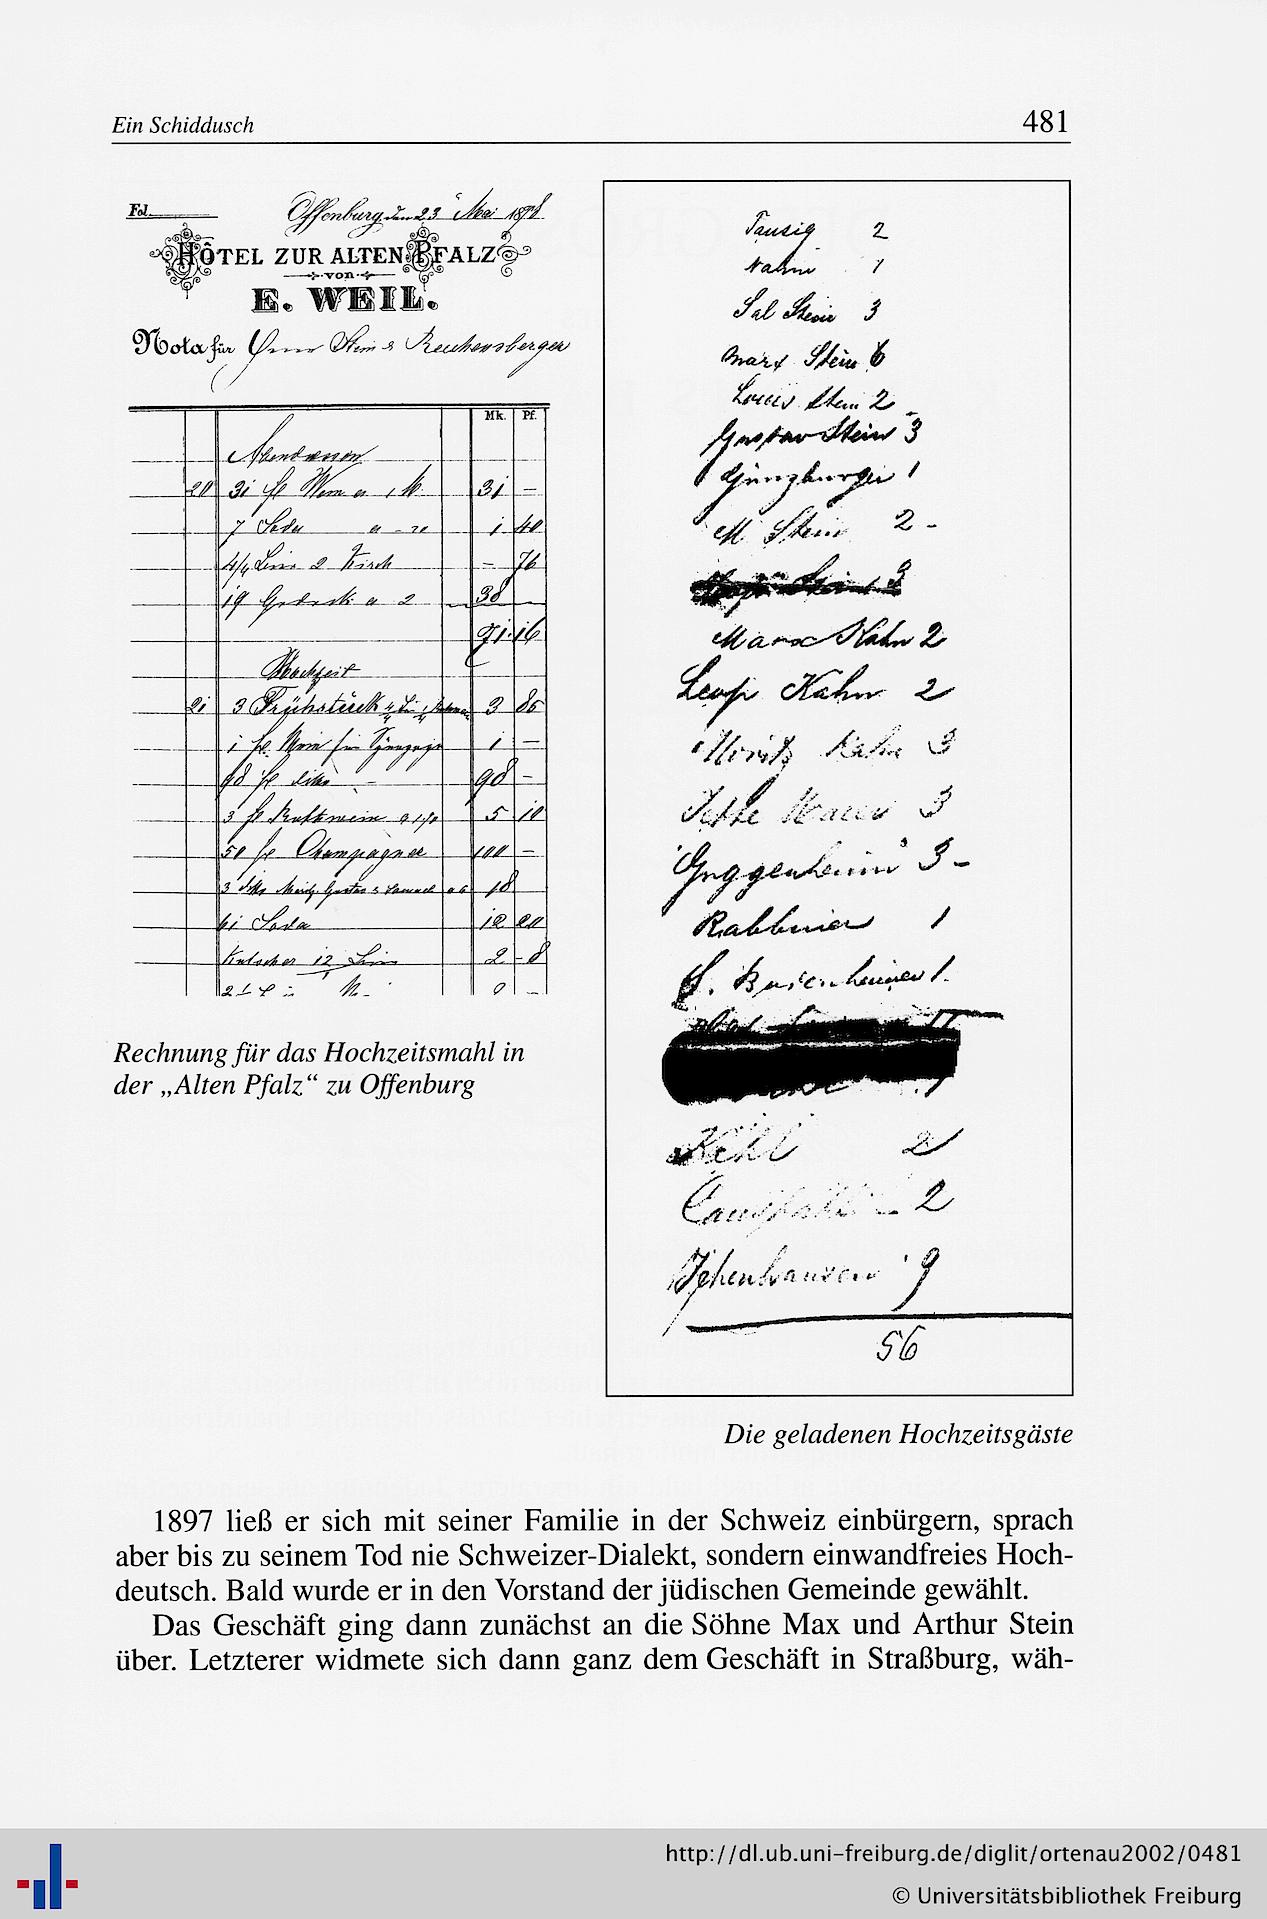 Ein Schiddusch 481
Fol.
Offenburg, den 23 Mai 1898
HÔTEL ZUR ALTEN PFALZ
von
E. WEIL.
Nota für Herrn Stein & Reichensberger
Mk. Pf.
Abendessen
20 31 fl Wein a 1 M. 31 -
7 Soda a - 20 1 40
- 76
19 Gedeck a 2 38
71.16
Hochzeit
21 3 Frühstück 3 85
1 fl. Wein für Synagoge 1 -
98 fl dito - 98 -
3 fl 5 10
50 fl Champagner 100 -
18
61 Soda 12 20
Kutscher 12 2 - 8
Rechnung für das Hochzeitsmahl in
der „Alten Pfalz“ zu Offenburg
Tausig 2
1
Sal Stein 3
Marx Stein 6
Louis Stein 2
Gustav Stein 3
Günzburger 1
M Stein 2 -
Stein 3
Marx Kahn 2
Leop Kahn 2
Moritz Kahn 3
3
Guggenheim 3 -
Rabbiner 1
1.
Kehl 2
2
Ichenhausen 9
56
Die geladenen Hochzeitsgäste
1897 ließ er sich mit seiner Familie in der Schweiz einbürgern, sprach
aber bis zu seinem Tod nie Schweizer-Dialekt, sondern einwandfreies Hoch-
deutsch. Bald wurde er in den Vorstand der jüdischen Gemeinde gewählt.
Das Geschäft ging dann zunächst an die Söhne Max und Arthur Stein
über. Letzterer widmete sich dann ganz dem Geschäft in Straßburg, wäh-
http://dl.ub.uni-freiburg.de/diglit/ortenau2002/0481
© Universitätsbibliothek Freiburg